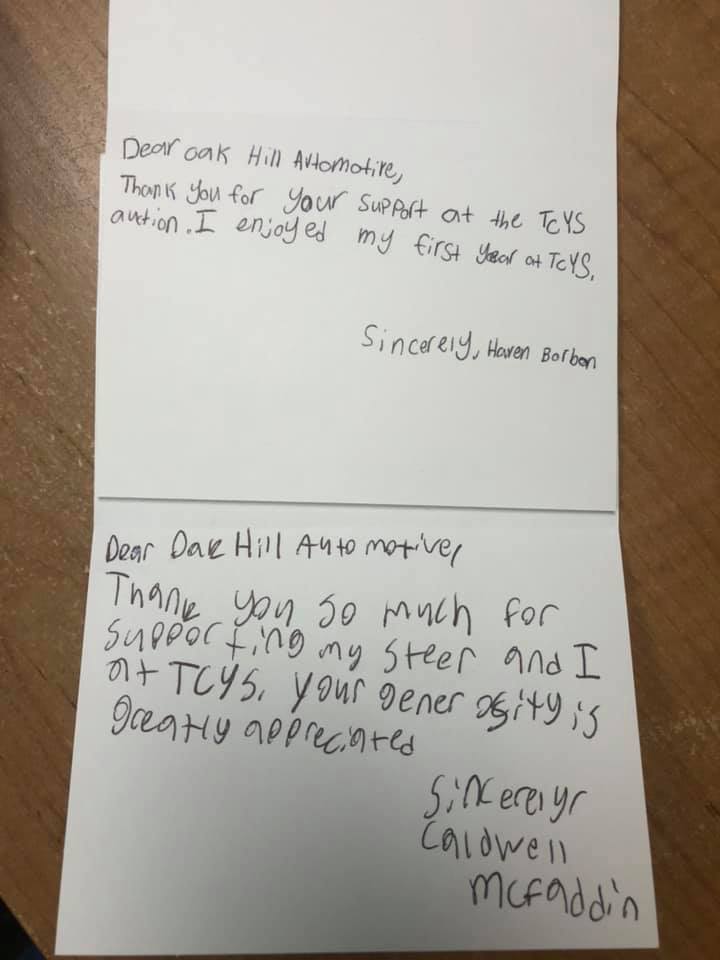 Dear oak Hill Automotive,
Thank you for your support at the TCYS
auction. I enjoyed my first year at TCYS.
Sincerely, Haven Borbon
Dear Oak Hill Automotive,
Thank you so much for
supporting my steer and I
at TCYS. your generosity is
greatly appreciated
Sincerely,
Caldwell
McFaddin